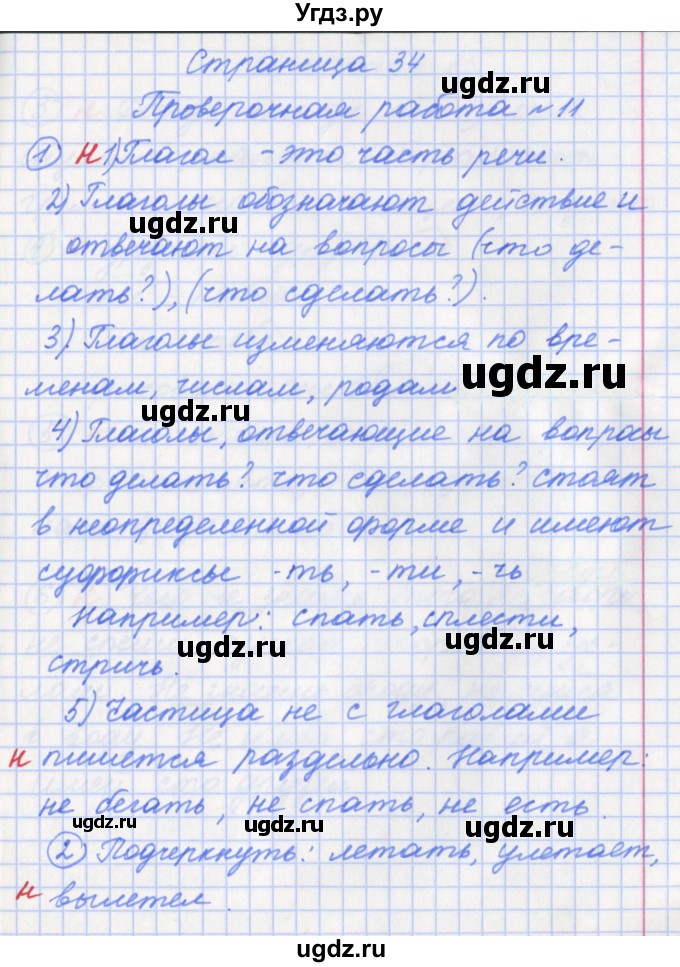 Угдз.ру
Страница 34
ugdz.ru
Проверочная работа №11
① н 1) Глагол - это часть речи.
2) Глаголы обозначают действие и
ugdz.ru
отвечают на вопросы (что де-
лать?), (что сделать?).
3) Глаголы изменяются по вре-
менам, числам, родам
ugdz.ru
ugdz.ru
4) Глаголы, отвечающие на вопросы
что делать? что сделать? стоят
в неопределенной форме и имеют
суффиксы -ть, -ти, -чь
Например: спать, сплести,
ugdz.ru
стричь.
5) Частица не с глаголами
н пишется раздельно. Например:
не бегать, не спать, не есть.
ugdz.ru ugdz.ru ugdz.ru
② Подчеркнуть: летать, улетает,
н вылетел.
ugdz.ru